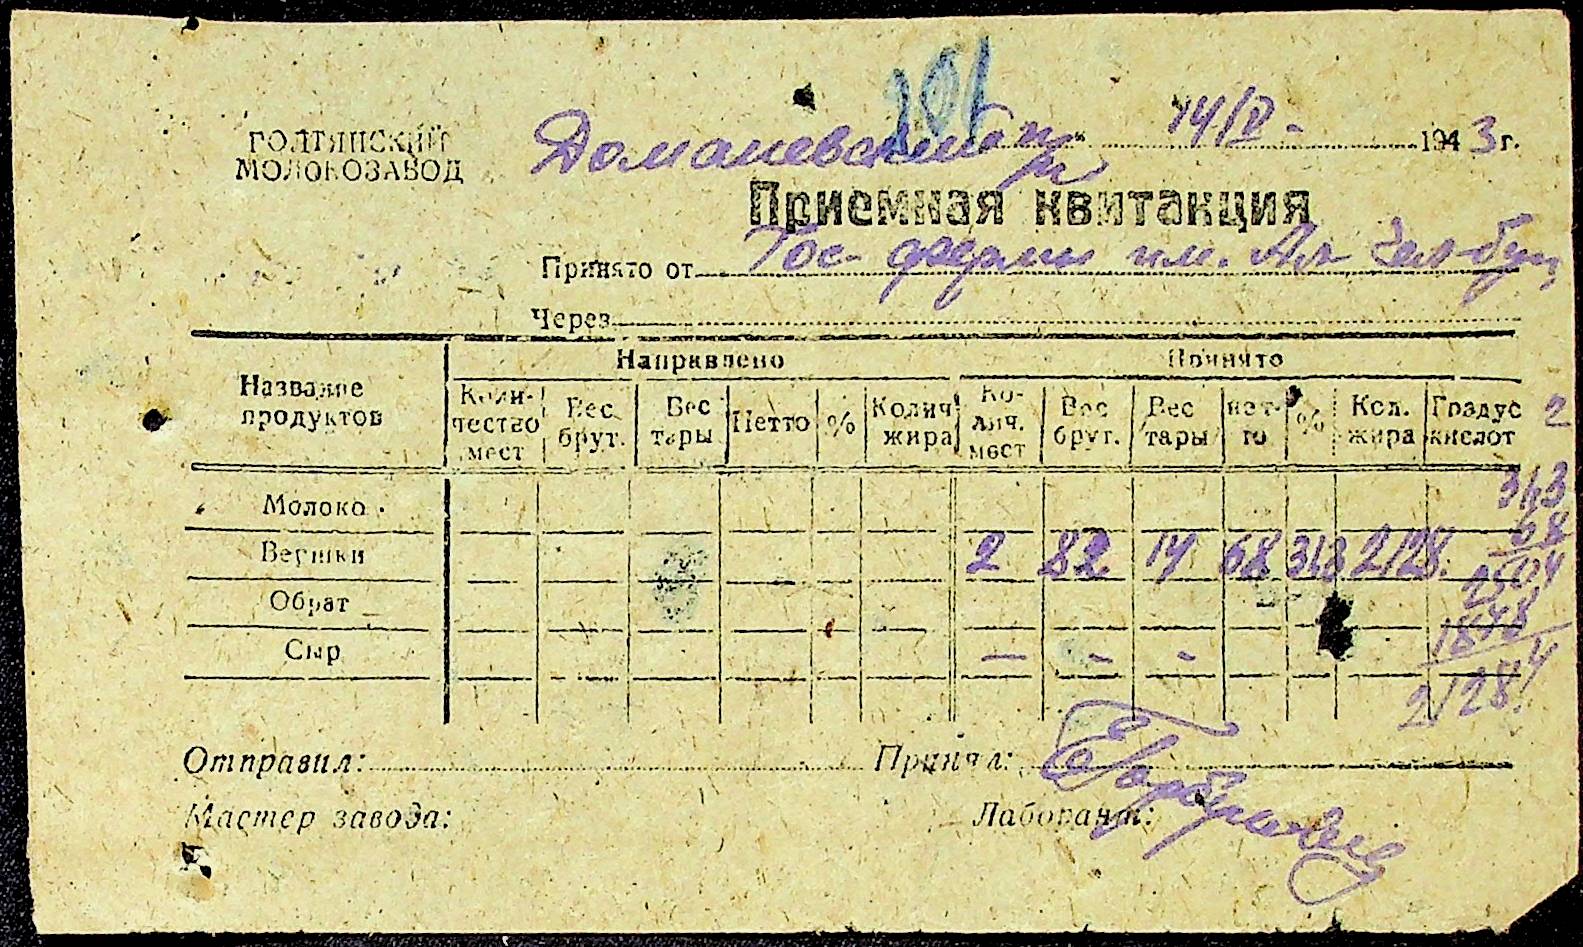 201
ГОЛТЯНСКИЙ
МОЛОКОЗАВОД
14/V - 1943 г.
Приемная квитанция
Принято от Гос. фермы им.
Через
Название продуктов Направлено Принято
Количество мест Вес брут. Вес тары Нетто % Колич жира Колич. мест Вес брут. Вес тары нетто % Кол. жира Градус кислот 2
Молоко 313
Вершки 2 82 14 68 313 2128. 68
Обрат 2504
Сыр — – - 1878
21284
Отправил: Принял:
Мастер завода: Лаборант: